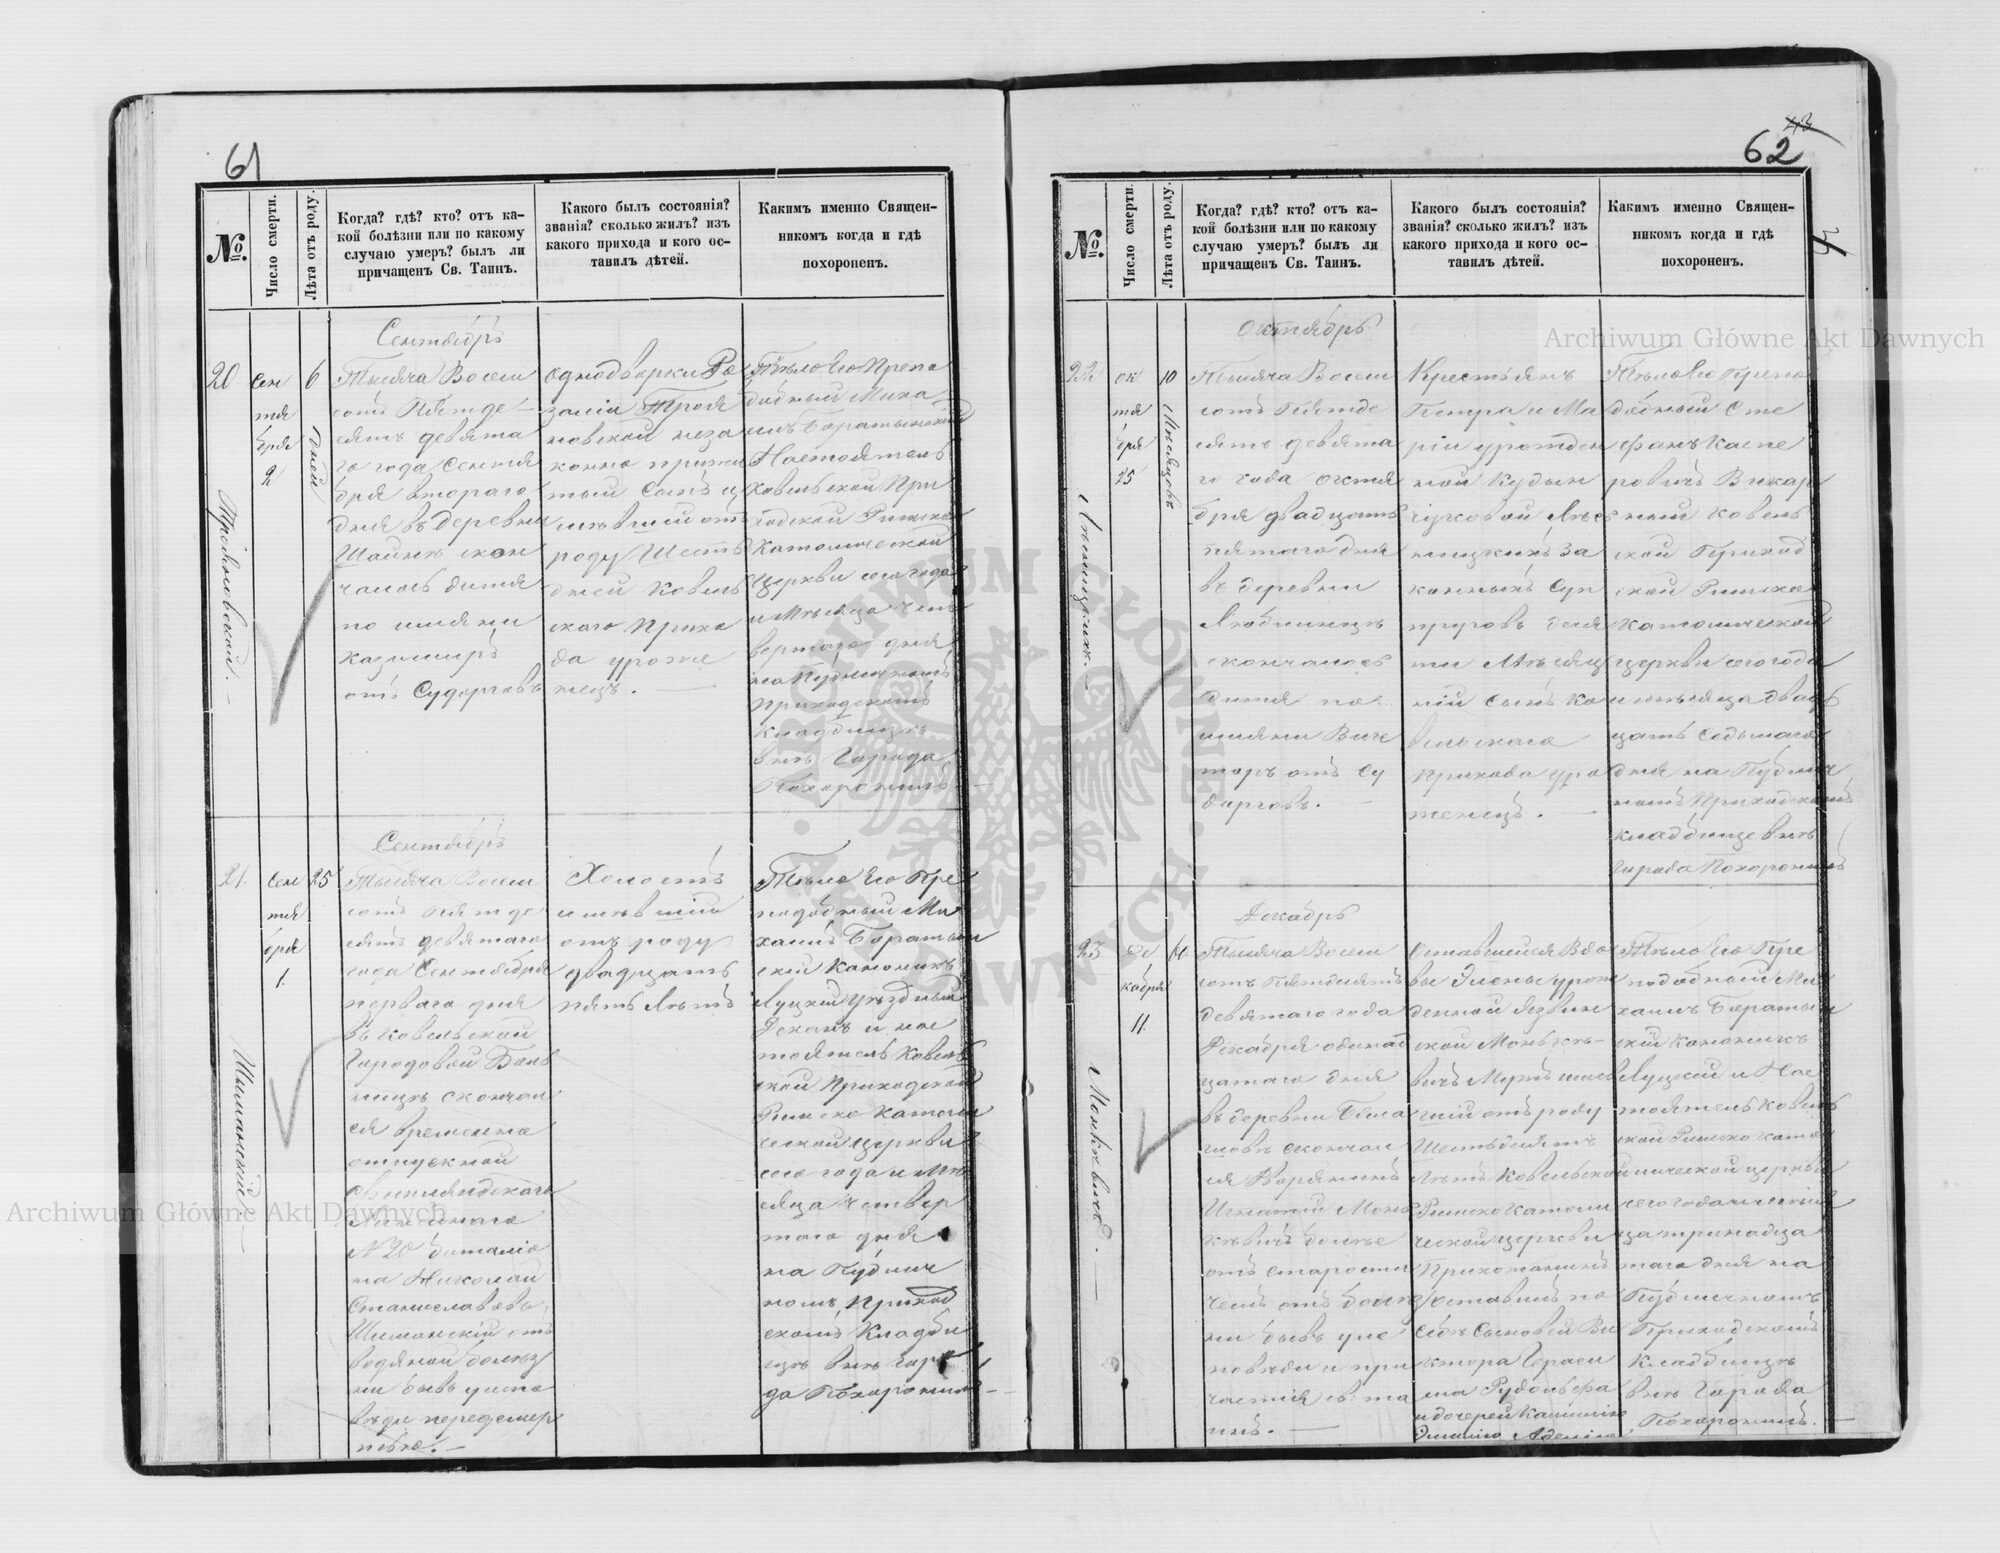 61
№.
Число смерти.
Лѣта отъ роду.
Когда? гдѣ? кто? отъ ка-
кой болѣзни или по какому
случаю умеръ? былъ ли
причащенъ Св. Таинъ.
Какого былъ состоянія?
званія? сколько жилъ? изъ
какого прихода и кого ос-
тавилъ дѣтей.
Каким именно Священ-
никомъ когда и гдѣ
похороненъ.
20
Сен
тя
бря
2
6
дней
Сентябрь
Тысяча Восем
сотъ Пятьде-
сятъ девята
го года Сентя
бря втораго
дня въ деревни
скон
чалось дитя
по имяни
Казимиръ
отъ Судорговъ
однодворки Ро
заліи Троя
новской неза
конно прижи
тый Сынъ и
мѣвшій отъ
роду Шесть
дней Ковель
скаго Прихо
да уроже
нецъ. —
Тѣло его Препо
добный Миха
илъ Баратынскій
Настоятель
Ковельской При
ходской Римско
Католической
Церкви сего года
и Мѣсяца чет
вертаго дня
на Публичномъ
Приходскомъ
Кладбищѣ
внѣ Города
Похоронилъ —
21.
Сен
тя
бря
1.
25
Шиманскій. —
Сентябрь
Тысяча Восем
сотъ Пятьде
сятъ девятаго
года Сентября
перваго дня
въ Ковельской
Городовой Боль
ницѣ скончал
ся временно
отпускной
Линейнаго
№ 20 баталіо
на Николай
Станиславовъ
Шиманскій отъ
водяной болѣз
ни бывъ испо
вѣди передсмер
тью. —
Холостъ
имѣвшій
отъ роду
двадцать
пять Лѣтъ
Тѣло его Пре
подобный Ми
хаилъ Баратын
скій Каноникъ
Луцкій уѣздный
Деканъ и нас
тоятель Ковель
ской Приходской
Римско Католи
ческой Церкви
сего года и Мѣ
сяца Четвер
таго дня
на Публич
номъ Приход
скомъ Кладби
щѣ внѣ горо
да Похоронилъ —
62
№.
Число смерти.
Лѣта отъ роду.
Когда? гдѣ? кто? отъ ка-
кой болѣзни или по какому
случаю умеръ? былъ ли
причащенъ Св. Таинъ.
Какого былъ состоянія?
званія? сколько жилъ? изъ
какого прихода и кого ос-
тавилъ дѣтей.
Каким именно Священ-
никомъ когда и гдѣ
похороненъ.
22
ок
тя
бря
25
10
Мѣсяцовъ
Октябрь
Тысяча Восем
сотъ Пятьде
сятъ девята
го года октя
бря двадцать
пятаго дня
въ деревни
Любминецъ
скончалось
дитя по
имяни Вик
торъ отъ Су
дорговъ. —
Крестьянъ
Петра и Ма
ріи урожден
ной
за
конныхъ Суп
руговъ деся
ти Мѣсяц
ній сынъ Ко
вельскаго
прихода уро
женецъ. —
Тѣло Его Препо
добный Сте
фанъ Каспе
ровичъ Викар
ный Ковель
ской Приход
ской Римско
Католической
церкви сего года
и мѣсяца двад
цать Седьмаго
дня на Публич
номъ Приходскомъ
кладбищѣ внѣ
Города Похоронилъ
23
де
кабря
11.
61.
Монькевичъ. —
Декабрь
Тысяча Восем
сотъ Пятьдесятъ
девятаго года
Декабря одинад
цатаго дня
въ деревни
скончал
ся Дворянинъ
Игнатій Монь
кѣвичъ болѣе
отъ старости
чемъ отъ болѣз
ни бывъ уис
повѣди и при
частія св. та
инъ. —
оставшейся Вдо
вы Элены урож
денной
ской Монькѣ-
вичъ Мужъ имѣв
шій отъ роду
Шестьдесятъ
Лѣтъ Ковельской
Римско Католи
ческой церкви
Прихожанинъ
оставилъ по
себѣ Сыновей Ви
ктора Гераси
ма Рудольфа
и дочерей Камилію
Эмилію
Тѣло Его Пре
подобный Ми
хаилъ Баратын
скій Каноникъ
Луцкій и Нас
тоятель Ковель
ской Римско Като
лической церкви
сего года и мѣся
ца тринадца
таго дня на
Публичномъ
Приходскомъ
Кладбищѣ
внѣ Города
Похоронилъ. —
Archiwum Główne Akt Dawnych
Archiwum Główne Akt Dawnych
ARCHIWUM GŁÓWNE AKT DAWNYCH